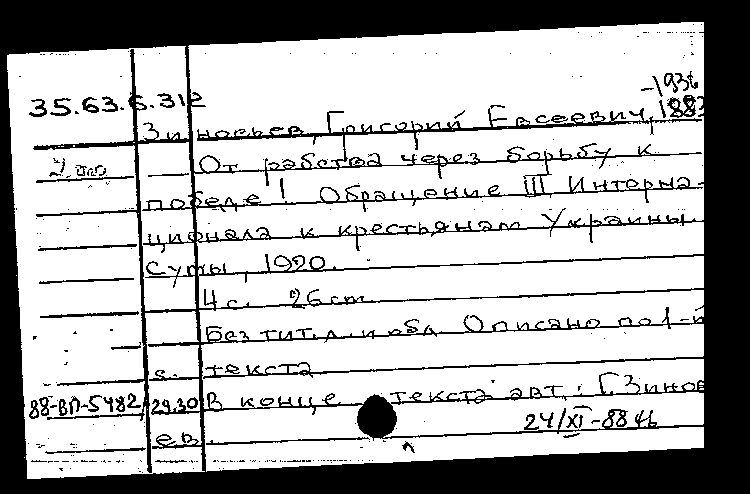 -1936
35.63.6.312
Зиновьев, Григорий Евсеевич, 1883
От рабства через борьбу к
победе! Обращение III Интерна-
ционала к крестьянам Украины
Сумы, 1920.
4 с. 26 cm
Без тит. л. и обл. Описано по 1-й
с. текста
88-ВП-5482/29.30 В конце текста авт.: Г. Зинов
ев.
24/XI-88